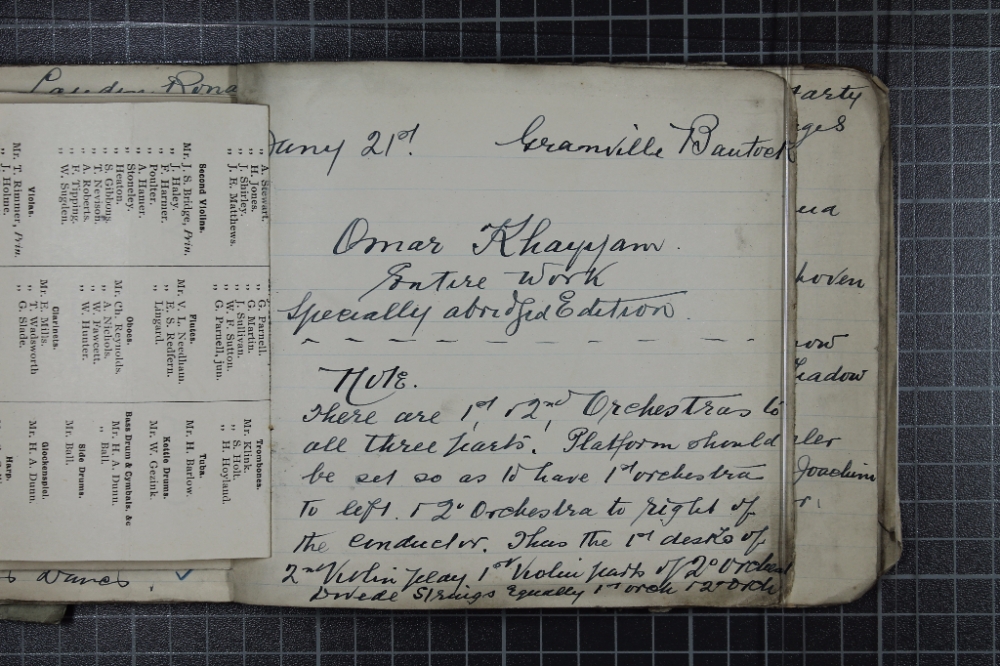 Landon Rona
Jany 21st. Granville Bantock
Omar Khayyam.
Entire Work
Specially abridged Edition.
Note.
There are 1st & 2nd Orchestras to
all three parts. Platform should
be set so as to have 1st orchestra
to left. & 2o Orchestra to right of
the conductor. Thus the 1st desks of
2nd Violin play 1st Violin parts of 2o Orchest
Divide Strings equally 1st orch & 2o Orch
„ A. Stewart.
„ H. Jones.
„ J. Shirley.
„ J. E. Matthews.
Second Violins.
Mr. J. S. Bridge, Prin.
„ J. Haley.
„ F. Harmer.
„ Poulter.
„ A. Hamer.
„ Stoneley.
„ Heaton.
„ S. Gibbons.
„ T. Nevison.
„ A. Roberts.
„ E. Tipping.
„ W. Sugden.
Violas.
Mr. T. Rimmer, Prin.
„ J. Holme.
„ G. Parnell.
„ G. Martin.
„ J. Sullivan.
„ W. F. Sutton.
„ G. Parnell, jun.
Flutes.
Mr. V. L. Needham.
„ E. S. Redfern.
„ Lingard.
Oboes.
Mr. Ch. Reynolds.
„ A. Nichols.
„ W. Fawcett.
„ W. Hunter.
Clarinets.
Mr. E. Mills.
„ T. Wadsworth
„ G. Slade.
Trombones.
Mr. Klink.
„ S. Holt.
„ H. Hoyland.
Tuba.
Mr. H. Barlow.
Kettle Drums.
Mr. W. Gezink.
Bass Drum & Cymbals, &c
Mr. H. A. Dunn.
„ Ball.
Side Drums.
Mr. Ball.
Glockenspiel.
Mr. H. A. Dunn.
Harp.
arty
ges
hoven
now
hadow
ler
Joachim
r.